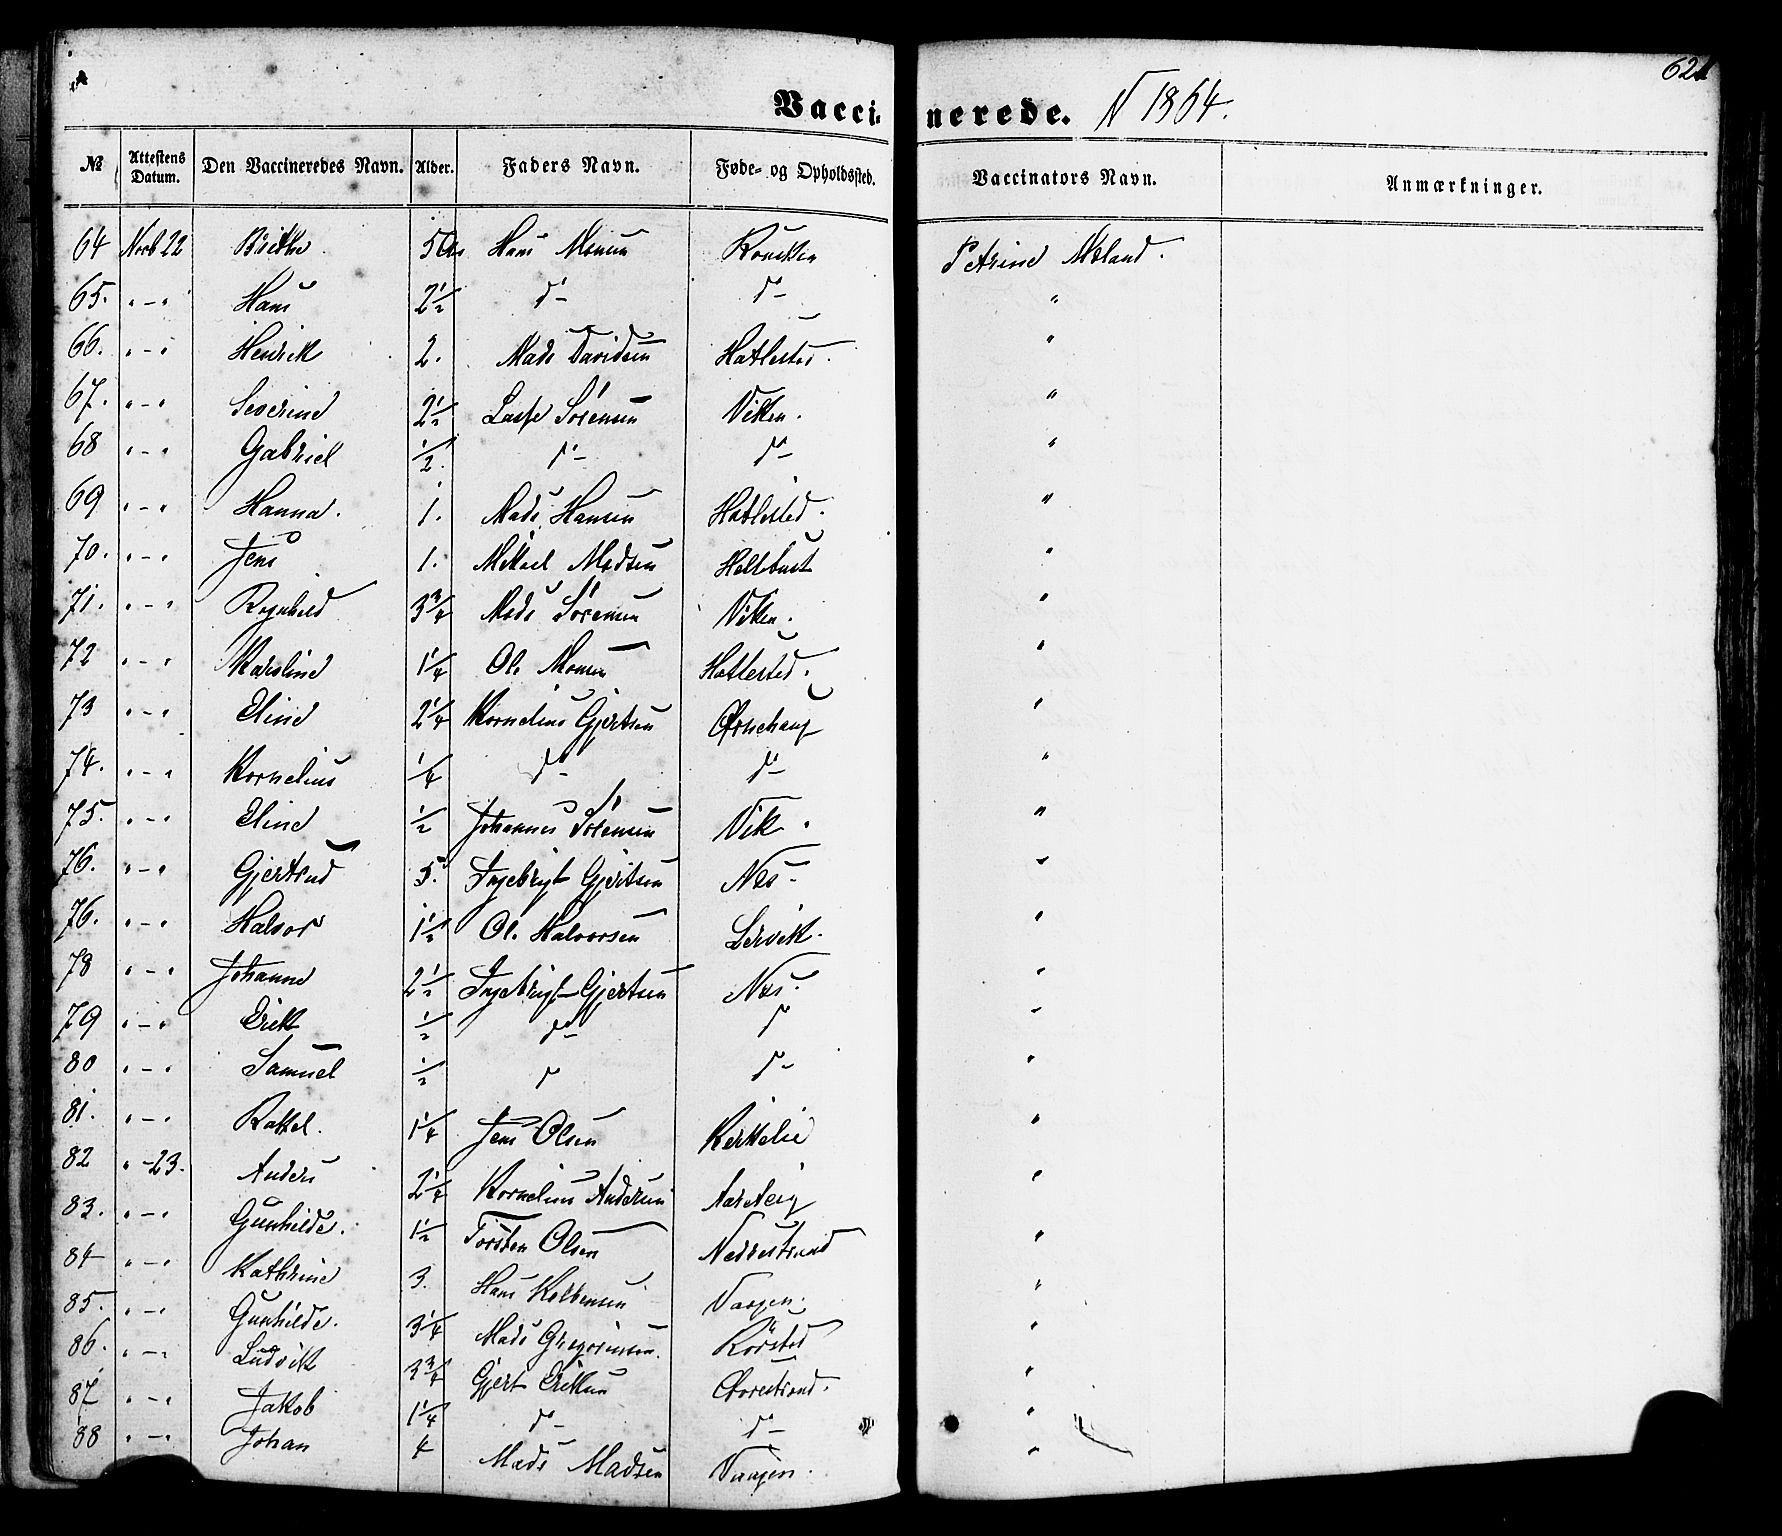 621
Vaccinerede. 1864.
№ Attestens Datum. Den Vaccineredes Navn. Alder. Faders Navn. Føde- og Opholdssted. Vaccinators Navn. Anmærkninger.
64 22 Brithe 5 Hans Monsen Petrine
65. " - " Hans 2 1/2 d°- d°- "
66. " - " Henrik 2. Mads Davidsen Hatlested. "
67. " - " Severine 2 1/2 Lasse Sørensen Viken. "
68 " - " Gabriel 1/2. d°- d°- "
69 " - " Hanna. 1. Mads Hansen Hatlested. "
70. " - " Jens 1. Mikael Madsen Hellebust "
71. " - " Ragnhild 3 3/4 Mads Sørensen Viken. "
72 " - " Karoline 1 1/4 Ole Monsen Hatlested. "
73 " - " Eline 2 1/4 Kornelius Gjertsen Ørnehaug "
74. " - " Kornelius 1/4 d°- d°- "
75. " - " Eline 1/2 Johannes Sørensen Vik. "
76. " - " Gjertrud 5. Ingebrigt Gjertsen Næs. "
76. " - " Halvor 1 1/2 Ole Halvorsen Lervik. "
78 " - " Johanne 2 1/2 Ingebrigt Gjertsen Næs. "
79 " - " Erik 1/2 d°- d° "
80 " - " Samuel 1/2 d° d°- "
81. " - " Rakel. 1 1/4 Jens Olsen "
82 " - 23. Anders 2 1/4 Kornelius Andersen "
83. " - " Gunhilde. 1 1/2 Torsten Olsen Nedrestrand "
84 " - " Kathrine 3. Hans Kolbensen Vaagen. "
85. " - " Gunhilde. 3 1/4 Mads Gregoriusen. Rørstad "
86. " - " Ludvik 3 3/4 Gjert Eriksen "
87 " - " Jakob 1 1/4 d°- d°- "
88 " - " Johan 4 Mads Madsen Vaagen. "